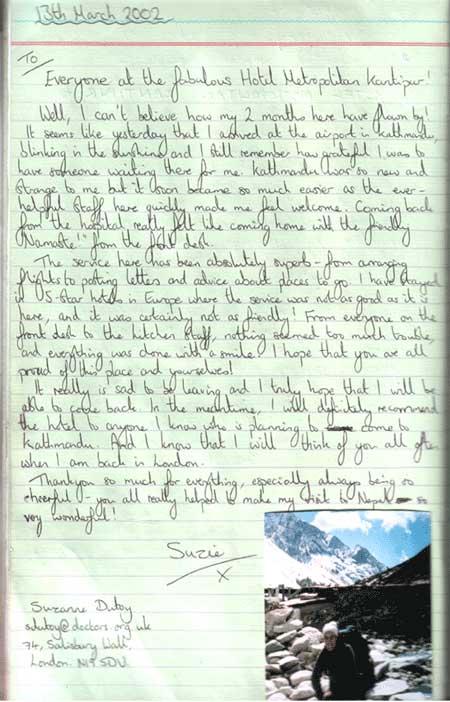 13th March 2002
To
Everyone at the fabulous Hotel Metropolitan Kantipur!
Well, I can't believe how my 2 months here have flown by!
It seems like yesterday that I arrived at the airport in Kathmandu,
blinking in the sunshine and I still remember how grateful I was to
have someone waiting there for me. Kathmandu was so new and
strange to me but it soon became so much easier as the ever-
helpful staff here quickly made me feel welcome. Coming back
from the hospital really felt like coming home with the friendly
"Namaste!" from the front desk.
The service here has been absolutely superb - from arranging
flights to posting letters and advice about places to go. I have stayed
in 5-star hotels in Europe where the service was not as good as it is
here, and it was certainly not as friendly! From everyone on the
front desk to the kitchen staff, nothing seemed too much trouble,
and everything was done with a smile. I hope that you are all
proud of this place and yourselves!
It really is sad to be leaving and I truly hope that I will be
able to come back. In the meantime, I will definitely recommend
the hotel to anyone I know who is planning to come to
Kathmandu. And I know that I will think of you all often
when I am back in London.
Thankyou so much for everything, especially always being so
cheerful - you all really helped to make my visit to Nepal so
very wonderful!
Suzie
X
Suzanne Dutoy
sdutoy@doctors.org.uk
74, Salisbury Walk,
London. N19 5DU